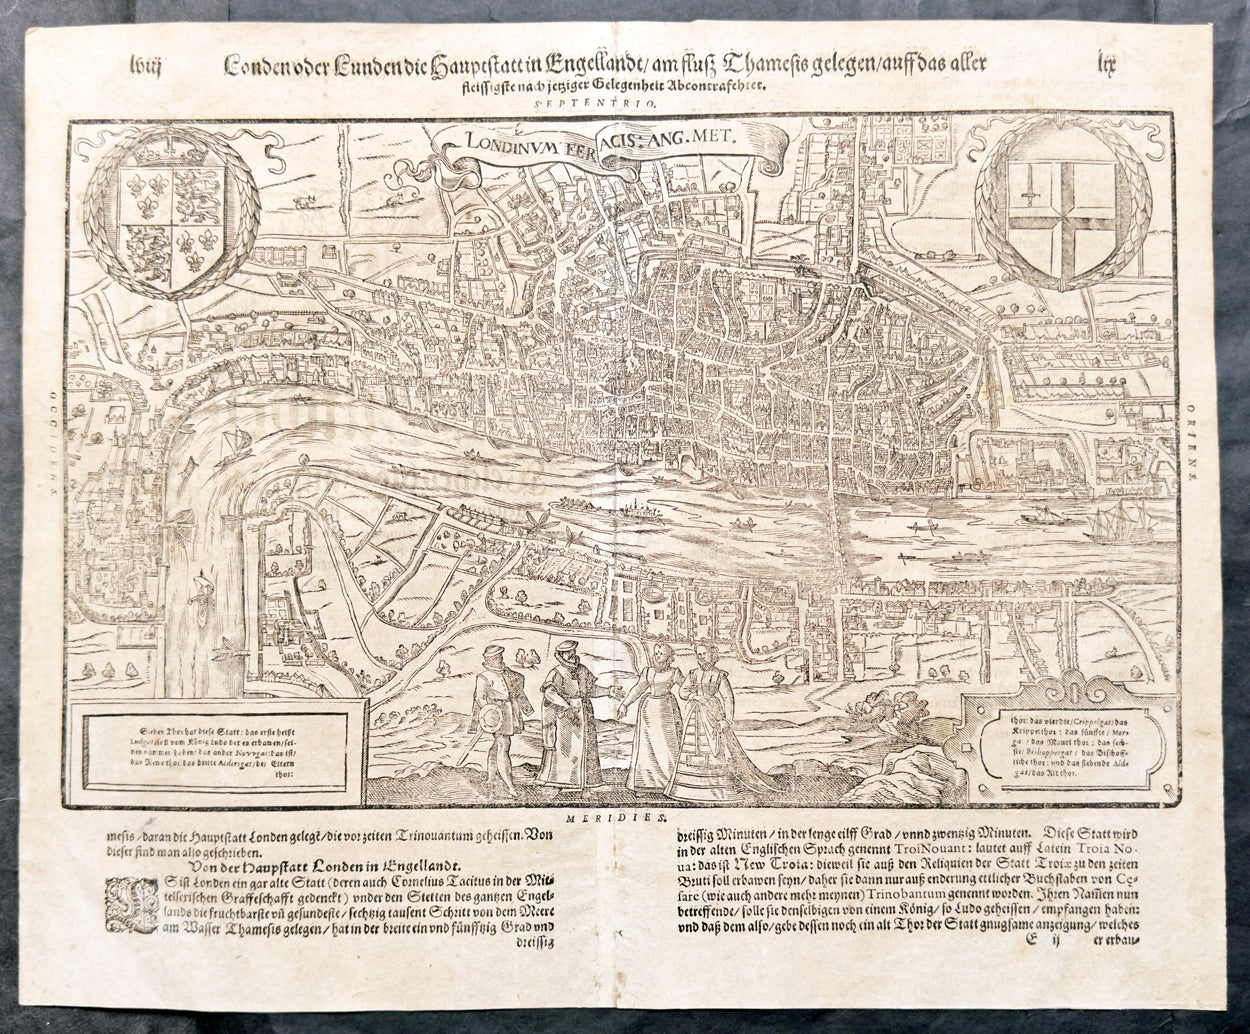 lviij
Londen oder Lunden die Hauptstatt in Engellandt / am fluß Thamesis gelegen / auff das aller
lix
fleissigste nach jetziger Gelegenheit Abcontrafehtet.
SEPTENTRIO.
LONDINVM FERACIS: ANG. MET.
OCCIDENS
ORIENS.
Sieben Thor hat diese Statt: das erste heist
Ludgat / ist vom König Ludo der es erbawen / sei-
nen nammen haben: das ander Nevvgat: das ist /
das Newe thor. das dritte Aldersgat / der Eltern
thor:
thor: das vierdte / Crippelgat / das
Krippelthor: das fünffte / More
ga / das Mauri thor: das sech-
ste / Bishoppesgat / das Bischoff-
liche thor: vnd das siebende Ald-
gat / das Alt thor.
MERIDIES.
mesis / daran die Hauptstatt Londen gelegē / die vor zeiten Trinouantum geheissen. Von
dieser find man also geschrieben.
Von der Hauptstatt Londen in Engellandt.
ES ist Londen ein gar alte Statt (deren auch Cornelius Tacitus in der Mit-
telsexischen Graffeschafft gedenckt) vnder den Stetten des gantzen Engel-
lands die fruchtbarste vñ gesundeste / sechtzig tausent Schritt von dem Meere
am Wasser Thamesis gelegen / hat in der breite ein vnd fünfftzig Grad vnd
dreissig
dreissig Minuten / in der lenge eilff Grad / vnnd zwentzig Minuten. Diese Statt wird
in der alten Englischen Sprach genennt TroiNouant: lautet auff Latein Troia No-
ua: das ist New Troia: dieweil sie auß den Reliquien der Statt Troiæ zu den zeiten
Bruti soll erbawen seyn / daher sie dann nur auß enderung etlicher Buchstaben von Cę-
sare (wie auch andere mehr meynen) Trinobantum genennt worden. Ihren Nam̄en nun
betreffende / solle sie denselbigen von einem König / so Ludo geheissen / empfangen haben:
vnd daß dem also / gebe dessen noch ein alt Thor der Statt gnugsame anzeigung / welches
E ij
er erbau-